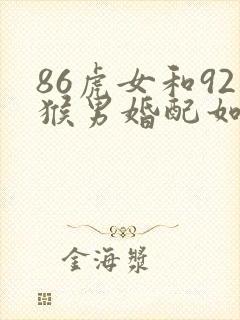 86虎女和92
猴男婚配如
金海漿